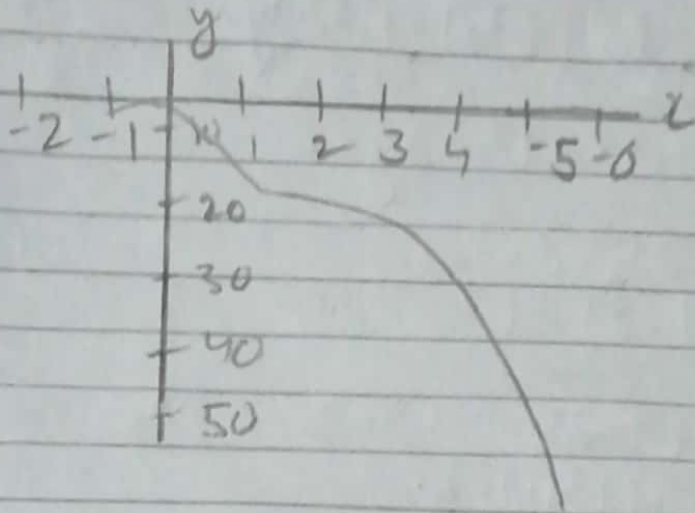 y
-2 -1 1 2 3 4 -5 -6 x
10
20
30
40
50